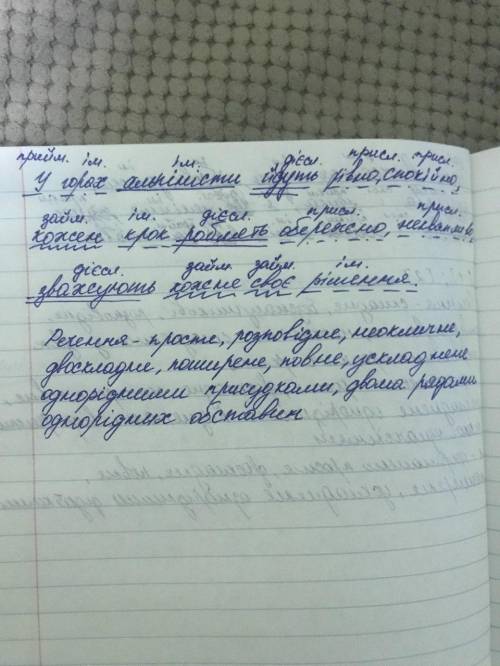 прийм. ім. ім. дієсл. присл. присл.
У горах альпіністи йдуть рівно, спокійно,
займ. ім. дієсл. присл. присл.
кожен крок роблять обережно,
дієсл. займ. займ. ім.
зважують кожне своє рішення.
Речення - просте, розповідне, неокличне,
двоскладне, поширене, повне, ускладнене
однорідними присудками, двома рядами
однорідних обставин